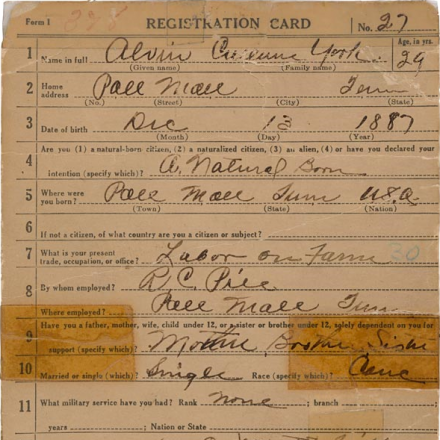 Form 1 REGISTRATION CARD No. 27
1 Name in full Alvin Cullium York Age, in yrs. 29
(Given name) (Family name)
2 Home address Pall Mall Tenn
(No.) (Street) (City) (State)
3 Date of birth Dec 13 1887
(Month) (Day) (Year)
Are you (1) a natural-born citizen, (2) a naturalized citizen, (3) an alien, (4) or have you declared your
4 intention (specify which)? A. Natural Born
5 Where were you born? Pall Mall Tenn U.S.A.
(Town) (State) (Nation)
6 If not a citizen, of what country are you a citizen or subject?
7 What is your present trade, occupation, or office? Labor on Farm 30
8 By whom employed? R. C. Pile
Where employed? Pall Mall Tenn
9 Have you a father, mother, wife, child under 12, or a sister or brother under 12, solely dependent on you for
support (specify which)? Mother, Brother, Sister
10 Married or single (which)? Single Race (specify which)?
11 What military service have you had? Rank none ; branch
years ; Nation or State